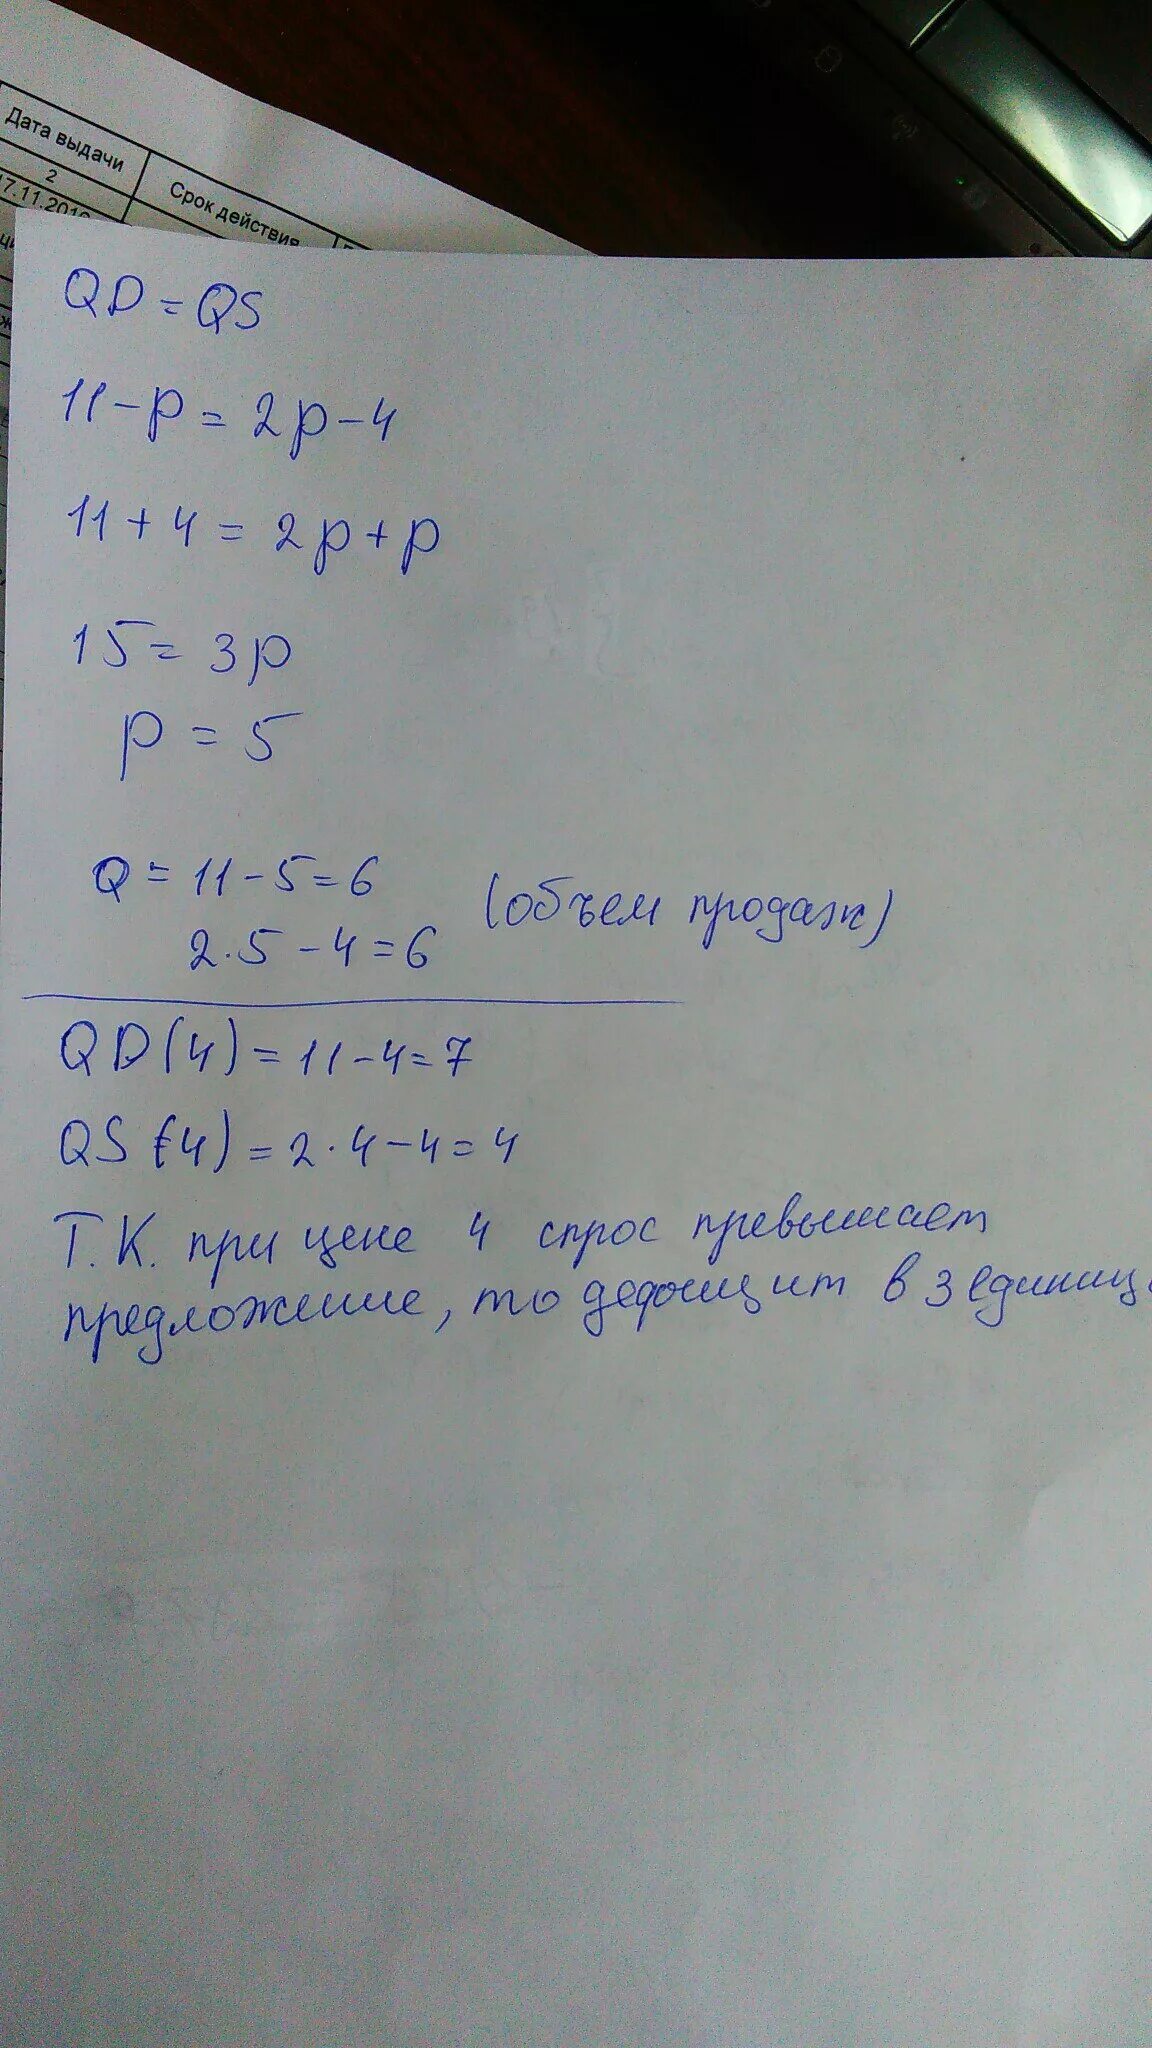 Дата выдачи
Срок действия
2
17.11.201
QD = QS
11 - p = 2p - 4
11 + 4 = 2p + p
15 = 3p
p = 5
Q = 11 - 5 = 6
2 · 5 - 4 = 6 (объем продаж)
QD(4) = 11 - 4 = 7
QS (4) = 2 · 4 - 4 = 4
Т.К. при цене 4 спрос превышает
предложение, то дефицит в 3 единиц